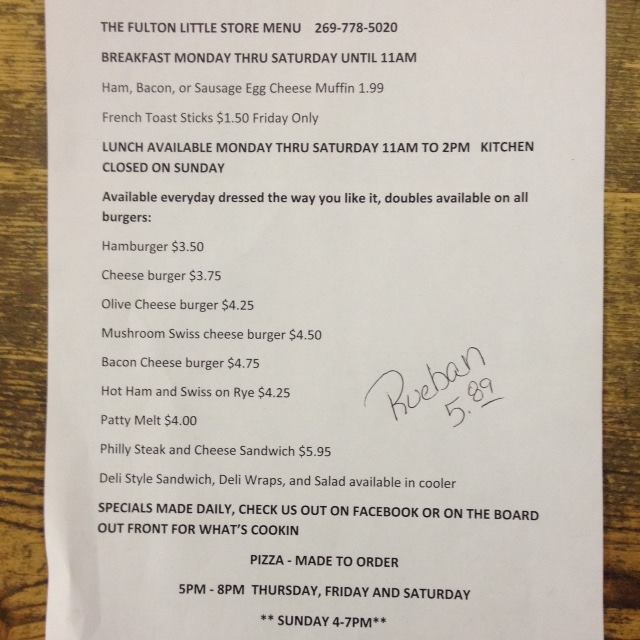 THE FULTON LITTLE STORE MENU 269-778-5020
BREAKFAST MONDAY THRU SATURDAY UNTIL 11AM
Ham, Bacon, or Sausage Egg Cheese Muffin 1.99
French Toast Sticks $1.50 Friday Only
LUNCH AVAILABLE MONDAY THRU SATURDAY 11AM TO 2PM KITCHEN
CLOSED ON SUNDAY
Available everyday dressed the way you like it, doubles available on all
burgers:
Hamburger $3.50
Cheese burger $3.75
Olive Cheese burger $4.25
Mushroom Swiss cheese burger $4.50
Bacon Cheese burger $4.75
Hot Ham and Swiss on Rye $4.25
Rueban
5.89
Patty Melt $4.00
Philly Steak and Cheese Sandwich $5.95
Deli Style Sandwich, Deli Wraps, and Salad available in cooler
SPECIALS MADE DAILY, CHECK US OUT ON FACEBOOK OR ON THE BOARD
OUT FRONT FOR WHAT'S COOKIN
PIZZA - MADE TO ORDER
5PM - 8PM THURSDAY, FRIDAY AND SATURDAY
** SUNDAY 4-7PM**